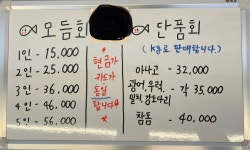 모듬회
1인 - 15,000
2인 - 25,000
3인 - 36,000
4인 - 46,000
5인 - 56,000
현금가
카드가
동일
합니다
단품회
(kg로 판매합니다.)
아나고 - 32,000
광어, 우럭,
밀치, 감오다리 각 35,000
참돔 - 40,000